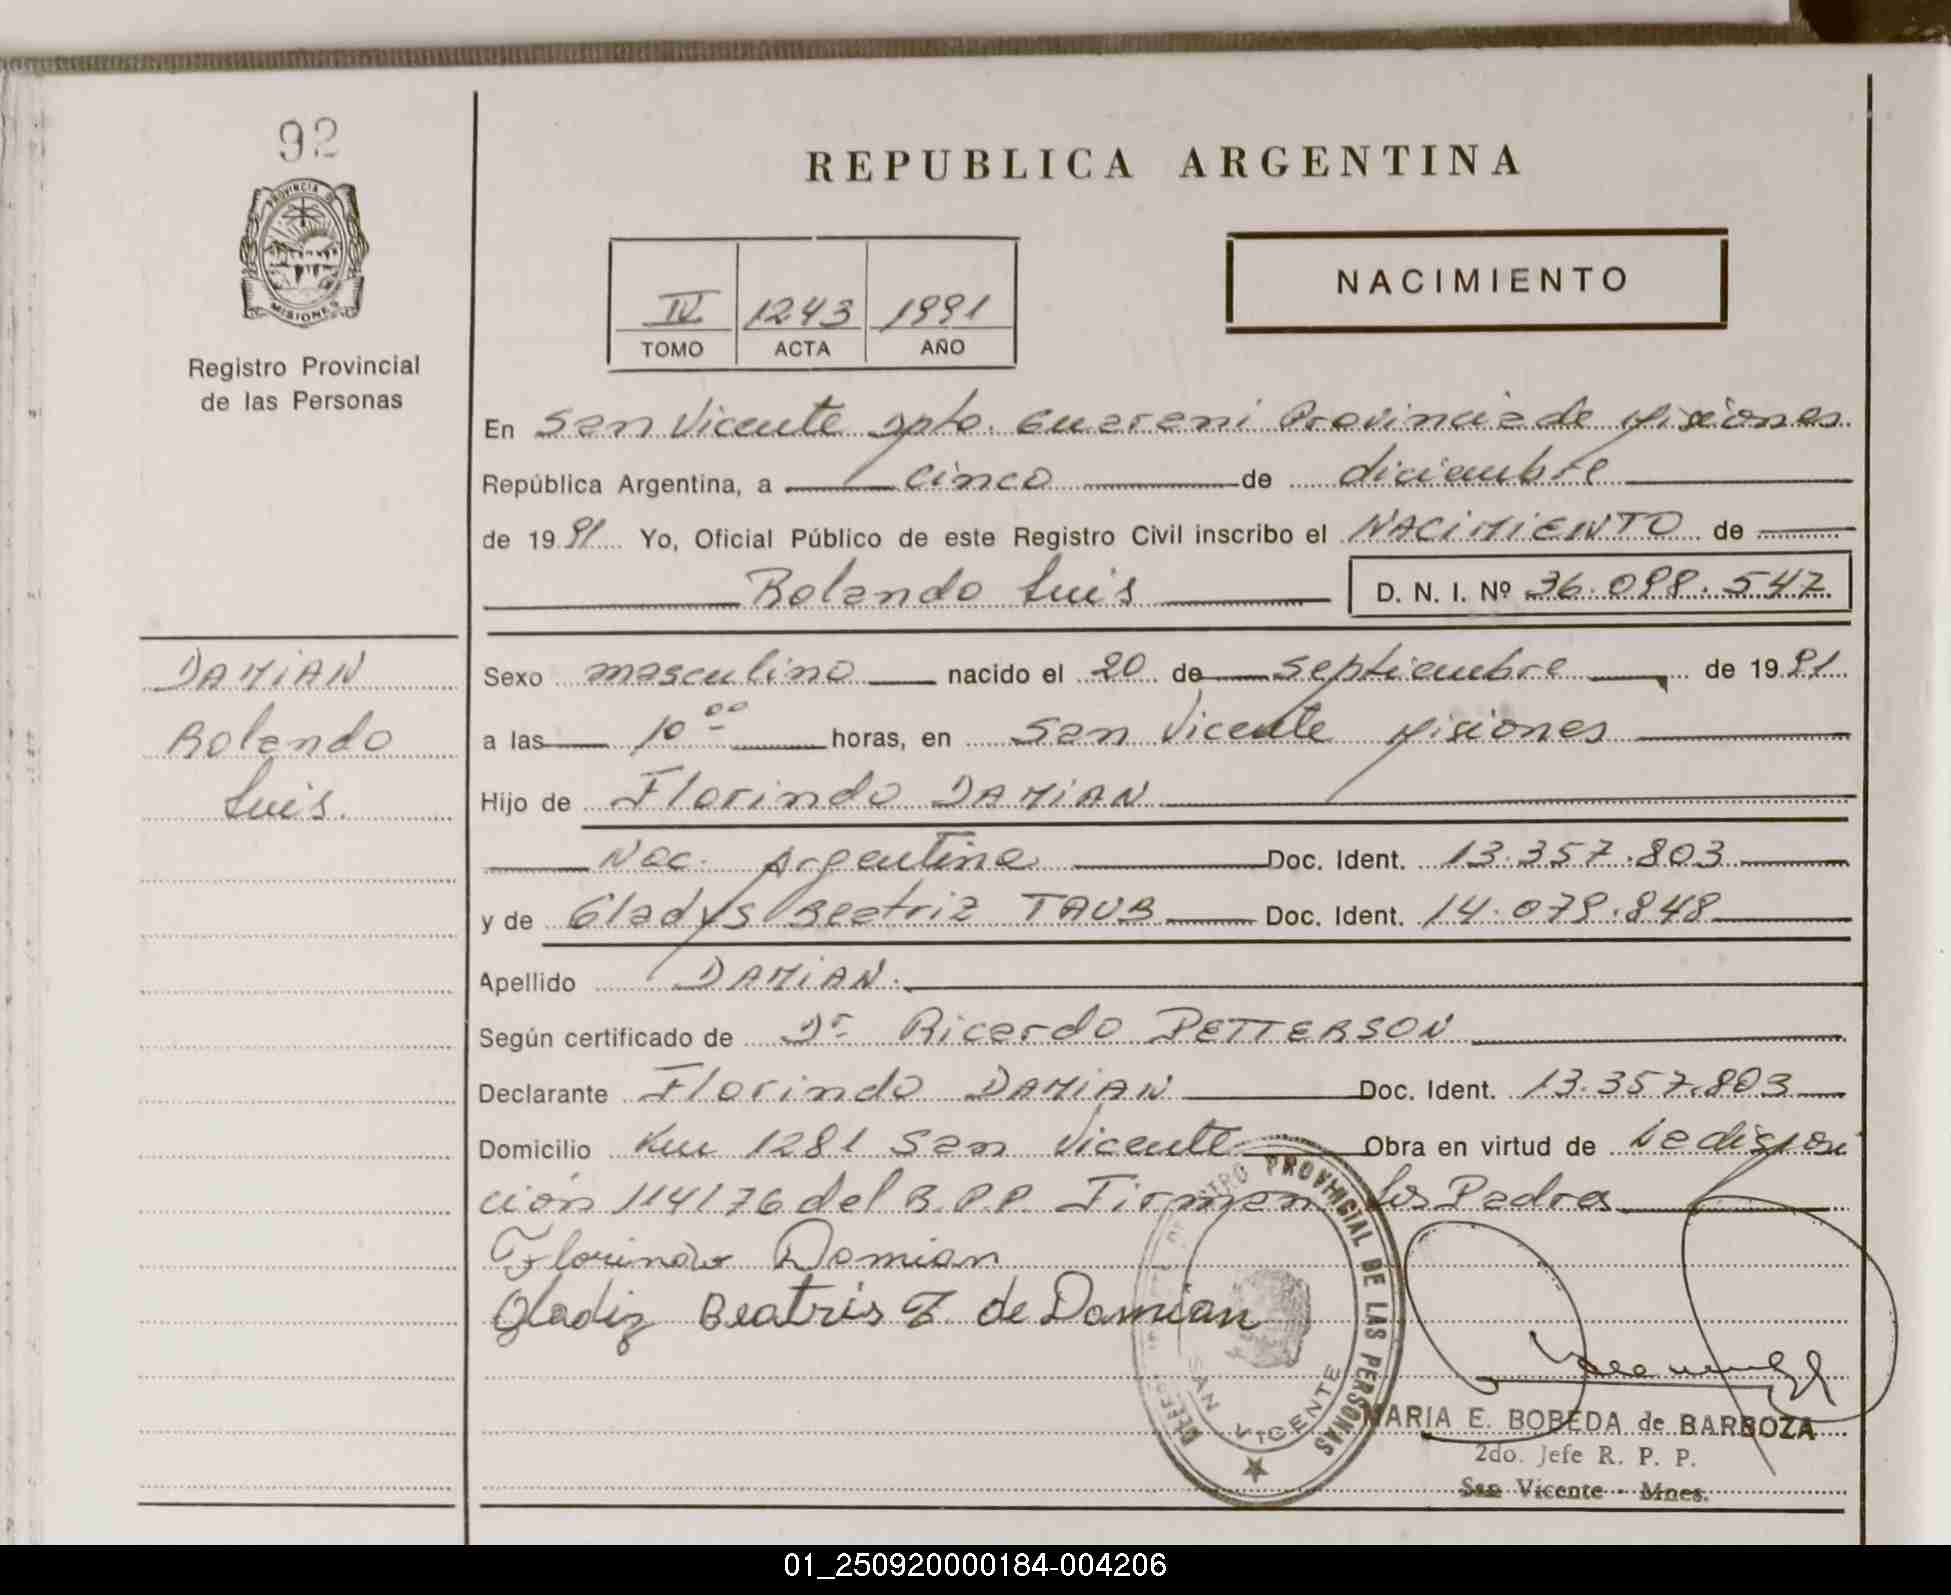 92
PROVINCIA DE
MISIONES
Registro Provincial
de las Personas
REPUBLICA ARGENTINA
NACIMIENTO
IV 1243 1991
TOMO ACTA AÑO
En San Vicente Dpto. Guarani Provincia de Misiones.
República Argentina, a cinco de diciembre
de 1991 Yo, Oficial Público de este Registro Civil inscribo el NACIMIENTO de
Rolando Luis D. N. I. Nº 36.098.547
DAMIAN
Rolando
Luis.
Sexo masculino nacido el 20 de septiembre de 1991
a las 10 00 horas, en San Vicente Misiones
Hijo de Florindo DAMIAN
Nac. Argentina Doc. Ident. 13.357.803
y de Gladys Beatriz TAUB Doc. Ident. 14.079.848
Apellido DAMIAN.
Según certificado de Dr Ricardo PETTERSON
Declarante Florindo DAMIAN Doc. Ident. 13.357.803
Domicilio Km 1281 San Vicente Obra en virtud de La disposi
ción 114/76 del R.P.P. Firman Los Padres
Florindo Damian
Gladiz Beatris T. de Damian
PROVINCIAL DE LAS PERSONAS
SAN VICENTE
MARIA E. BOBEDA de BARBOZA
2do. Jefe R. P. P.
San Vicente - Mnes.
01_250920000184-004206